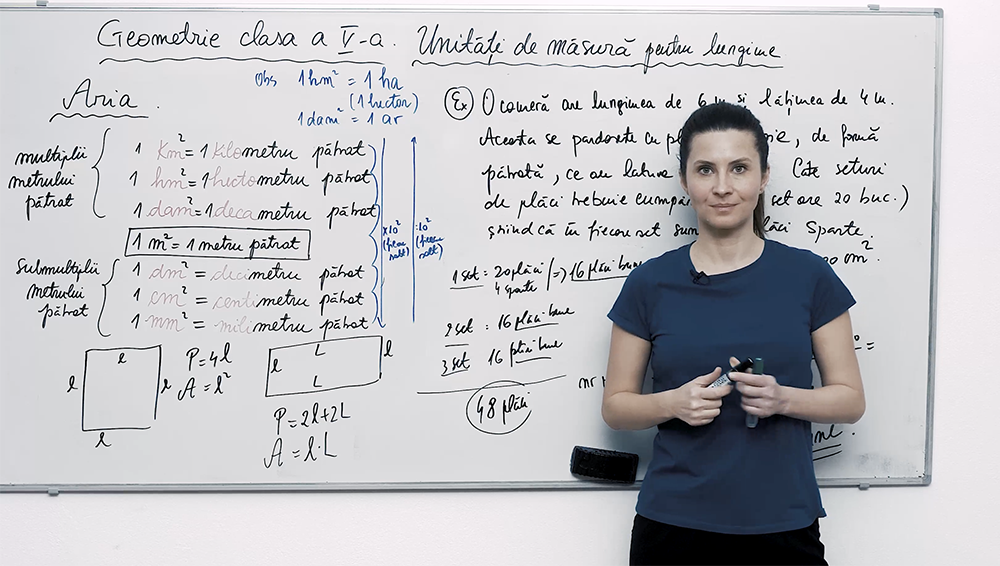 Geometrie clasa a V-a. Unități de măsură pentru lungime
Aria.
Obs 1 hm² = 1 ha
(1 hector)
1 dam² = 1 ar
multiplii
metrului
pătrat
1 km² = 1 kilometru pătrat
1 hm² = 1 hectometru pătrat
1 dam² = 1 decametru pătrat
1 m² = 1 metru pătrat
submultiplii
metrului
pătrat
1 dm² = decimetru pătrat
1 cm² = centimetru pătrat
1 mm² = milimetru pătrat
x10²
:10²
l
l
l
l
P = 4l
A = l²
L
l
l
L
P = 2l + 2L
A = l·L
Ex O cameră are lungimea de 6 m și lățimea de 4 m.
Aceasta se pardosește cu , de formă
pătrată, ce au latura Câte seturi
de plăci trebuie set are 20 buc.)
știind că în fiecare set sparte.
1 set = 20 plăci (=) 16 plăci bune
4 sparte
2 set = 16 plăci bune
3 set 16 plăci bune
48 plăci
nr